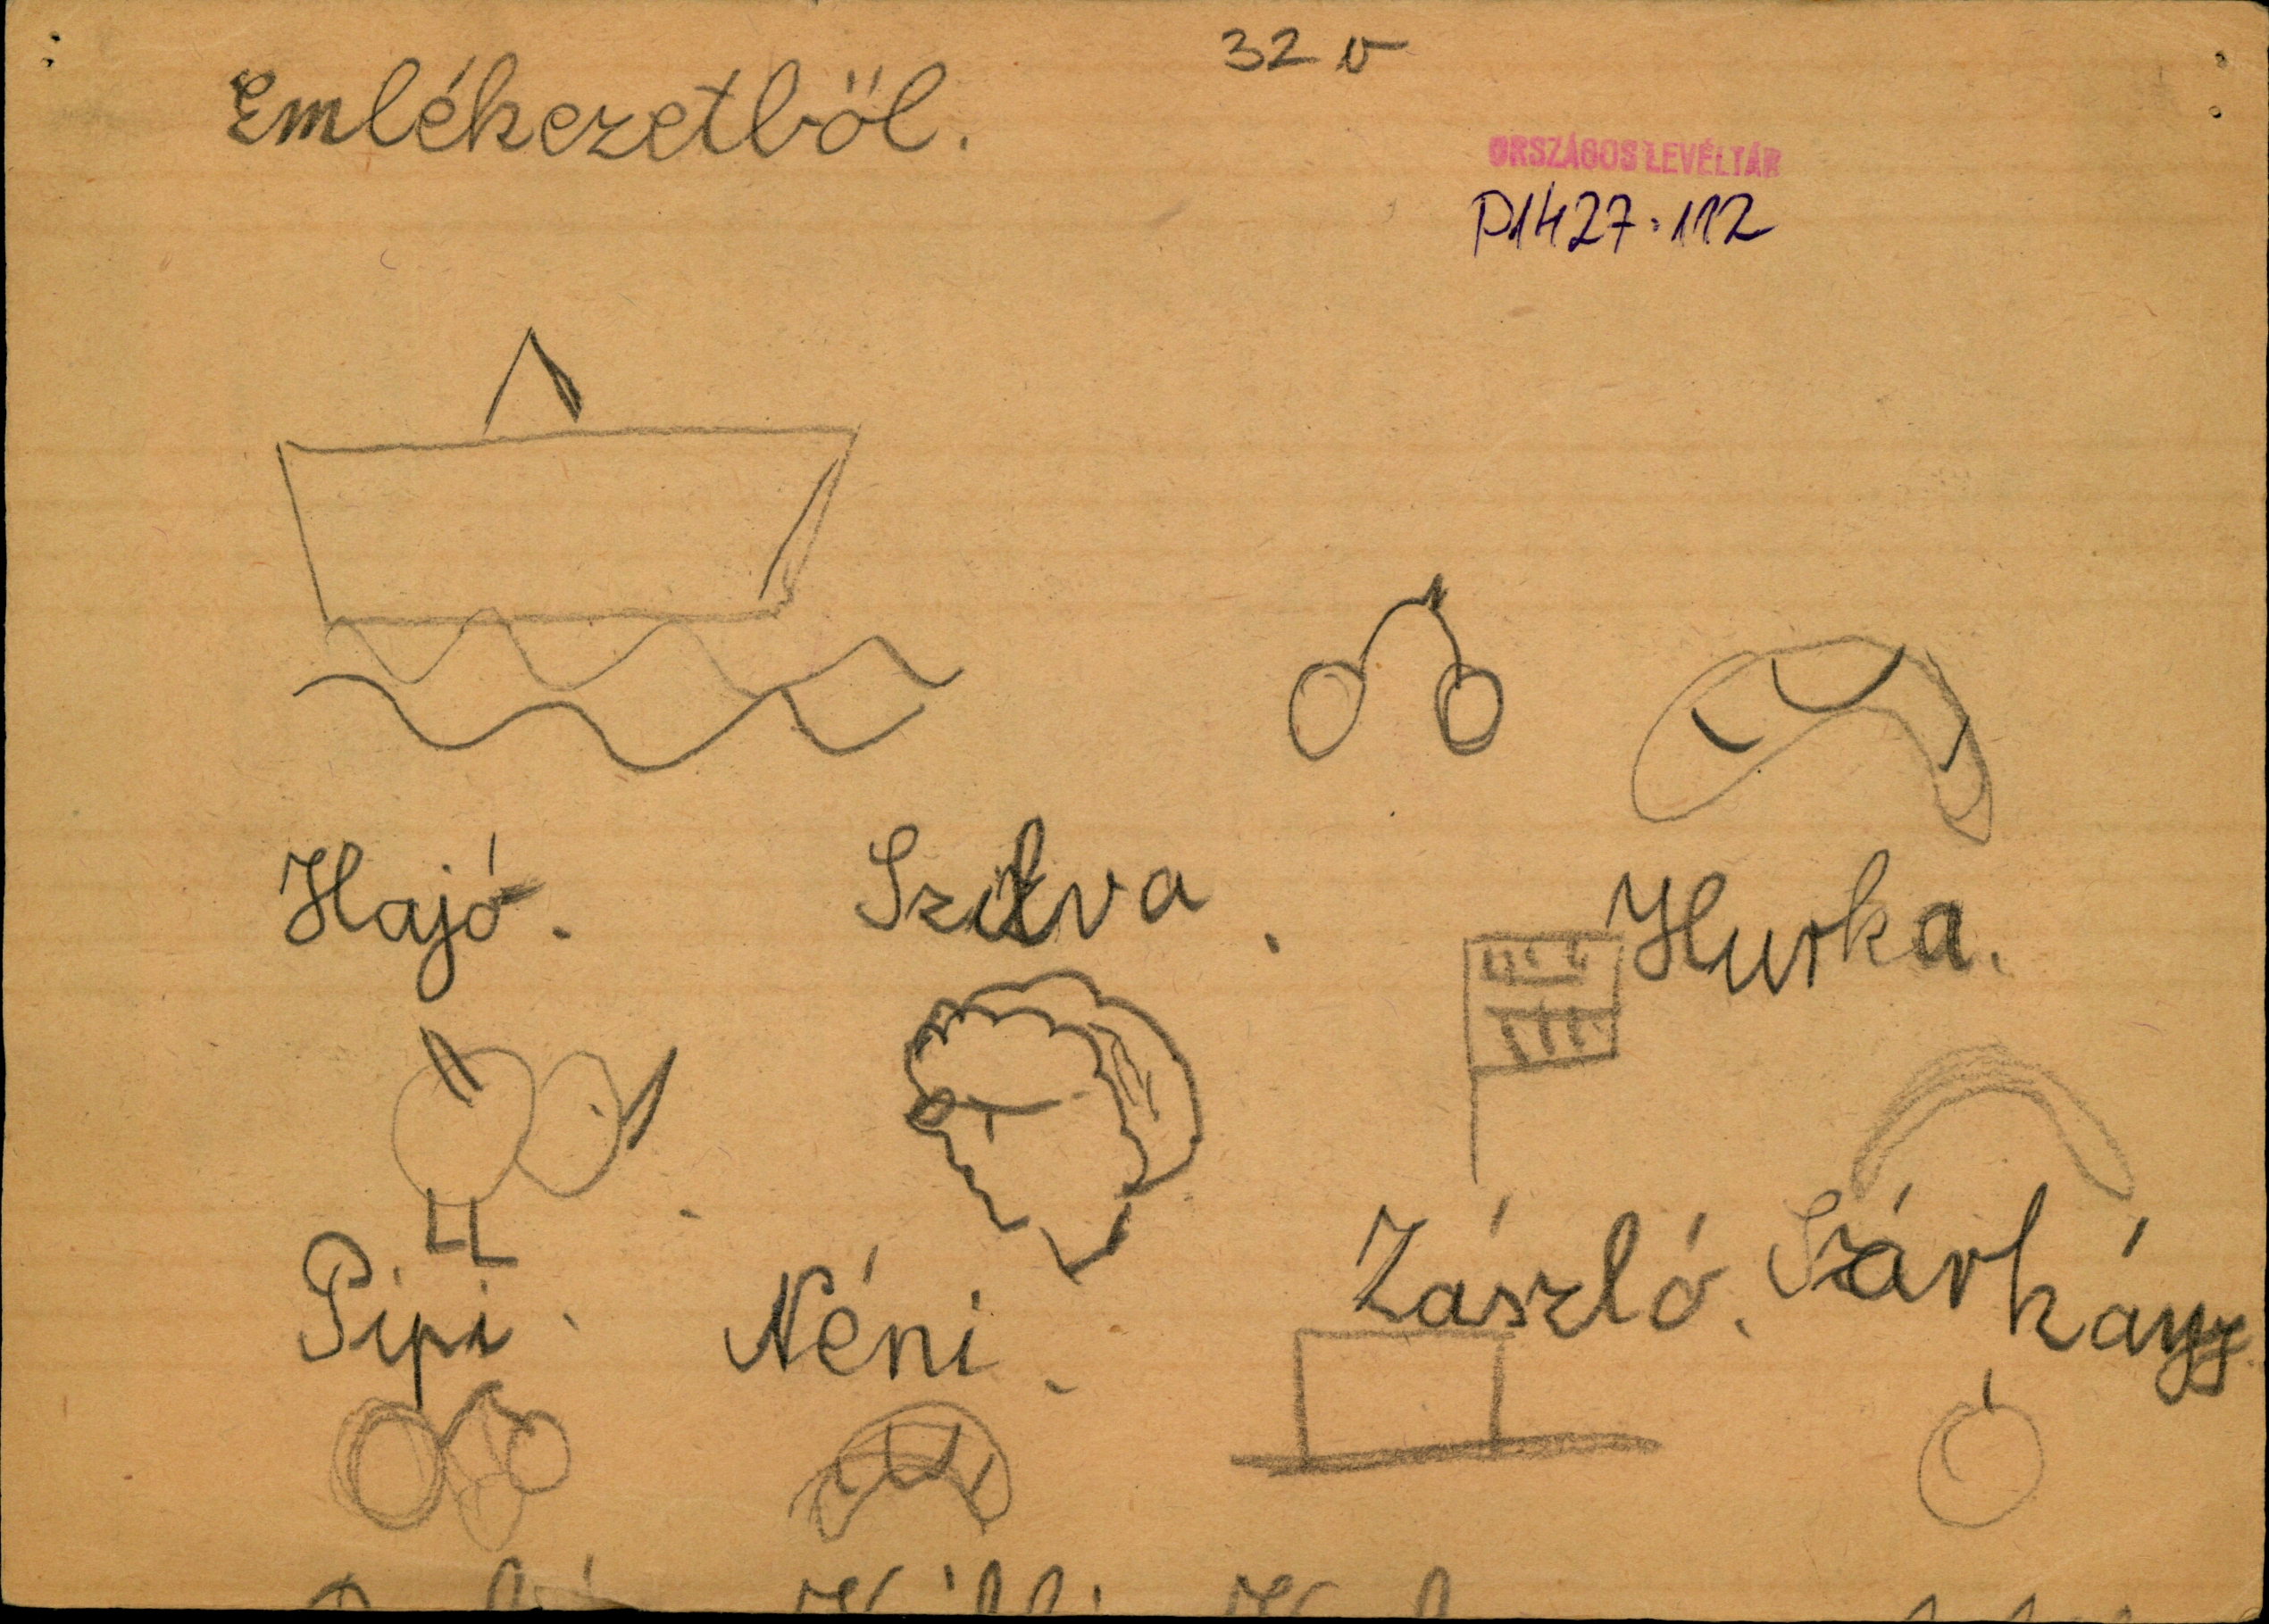 32 v
Emlékezetböl.
ORSZÁGOS LEVÉLTÁR
P1427·112
Hajó. Szilva. Hurka.
Pipi. Néni. Zászló. Szárkány